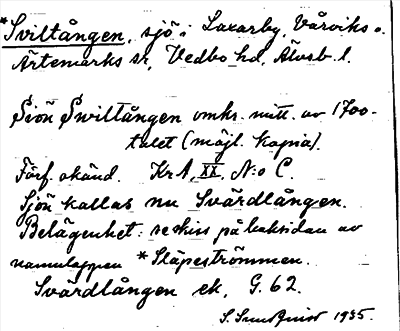 *Sviltången, sjö i Laxarby, Vårviks o.
Ärtemarks sr, Vedbo hd, Älvsb. l.
Siön Swiltången omkr. mitt. av 1700-
talet (möjl. kopia).
Förf. okänd. KrA, XX, N:o C.
Sjön kallas nu Svärdlången.
Belägenhet: se skiss på baksidan av
namnlappen *Släpeströmmen.
Svärdlången ek. G. 62.
S. Sundquist 1935.